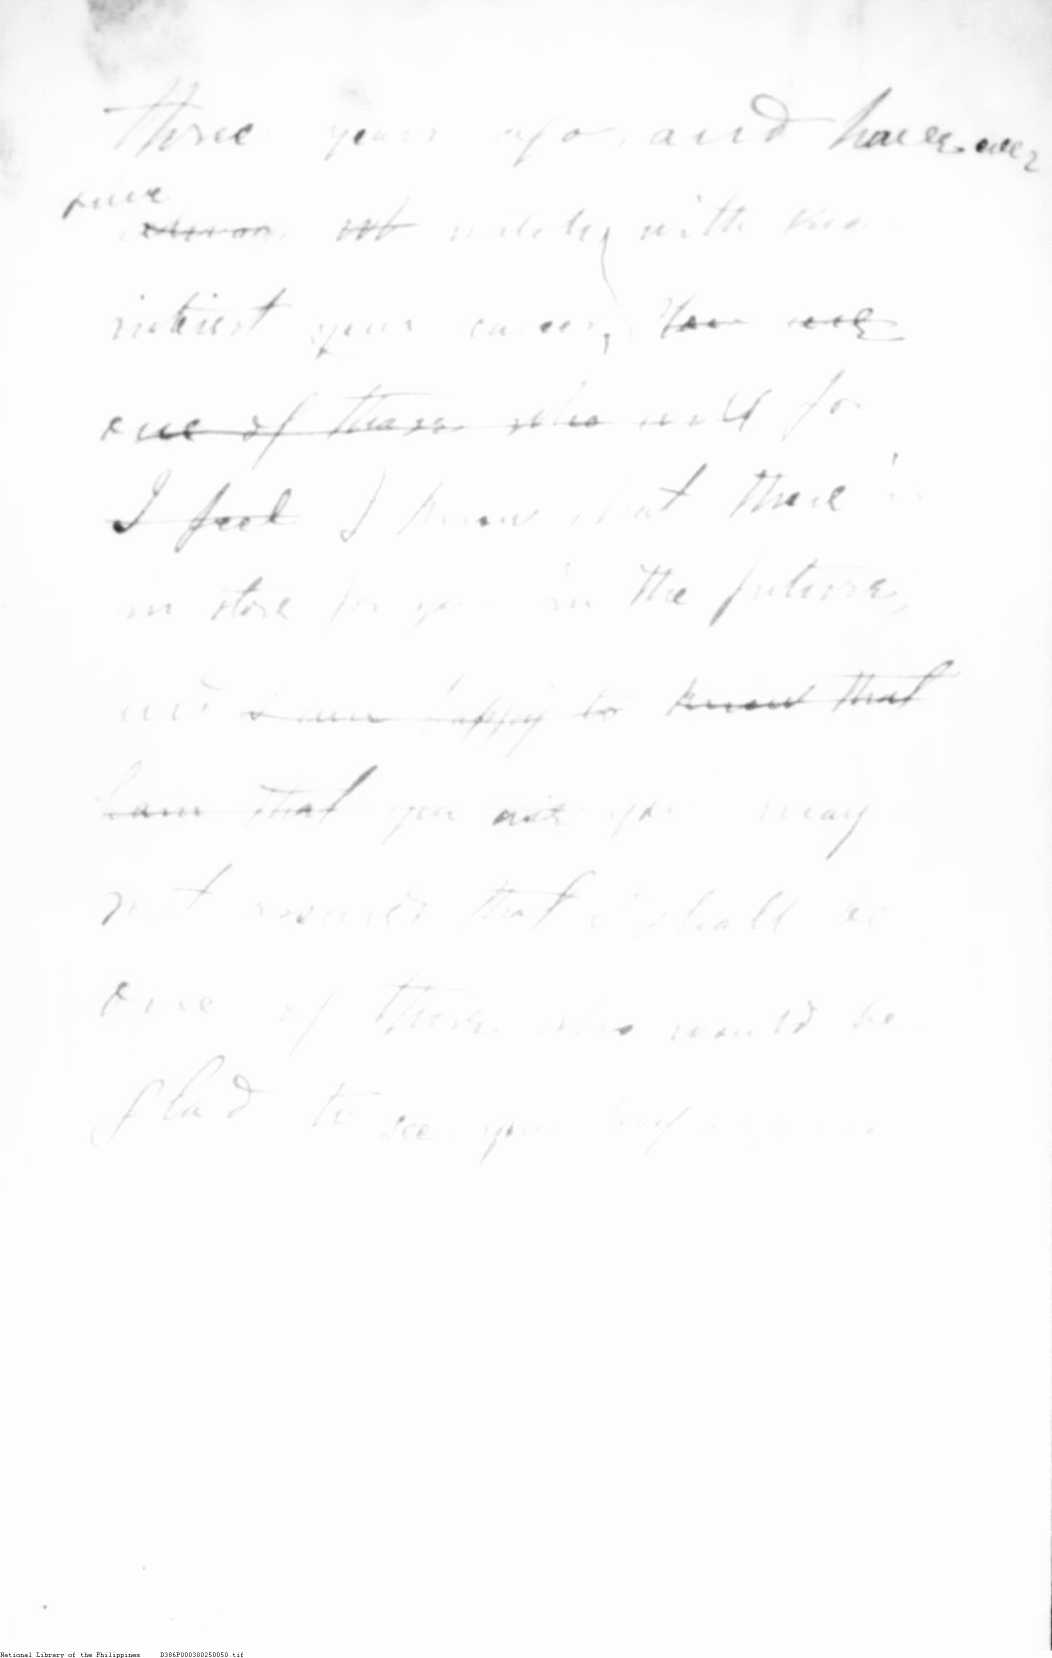 three years ago, and have ever
since
with
interest your career, You are
one of those who will for
I feel I know what there is
in store for you in the future,
and I am happy to know that
that you are you may
rest assured that I shall be
one of those who would be
glad to see you
National Library of the Philippines D386P000380250050.tif